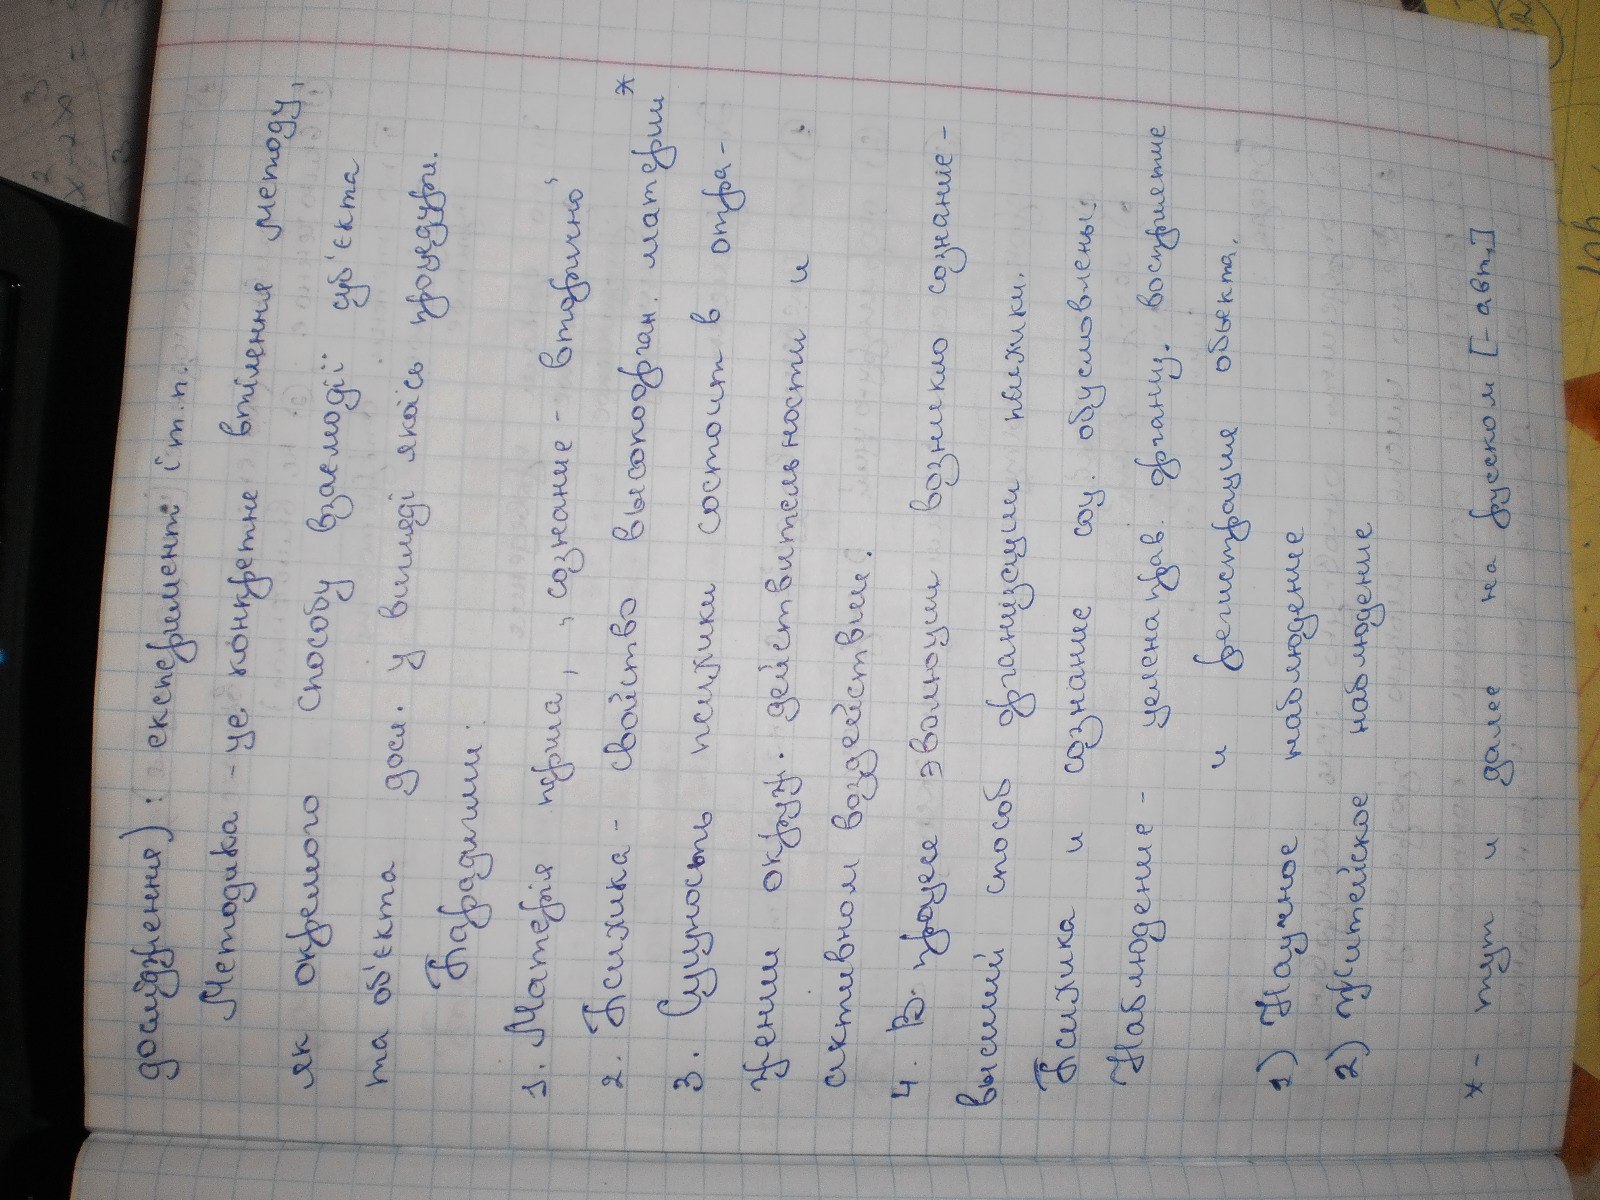 дослідження) : експеримент і т.п.
Методика - це конкретне втілення методу,
як окремого способу взаємодії суб'єкта
та об'єкта досл. у вигляді якоїсь процедури.
Парадигми:
1. Матерія перша, "сознание - вторично"
2. Психика - свойство высокоорган. материи *
3. Сущность психики состоит в отра-
жении окруж. действительности и
активном воздействии.
4. В процессе эволюции возникло сознание -
высший способ организации психики.
Психика и сознание соц. обусловлены.
Наблюдение - целенаправ. организ. восприятие
и регистрация объекта.
1) Научное наблюдение
2) Житейское наблюдение
* - тут и далее на русском [- авт.]